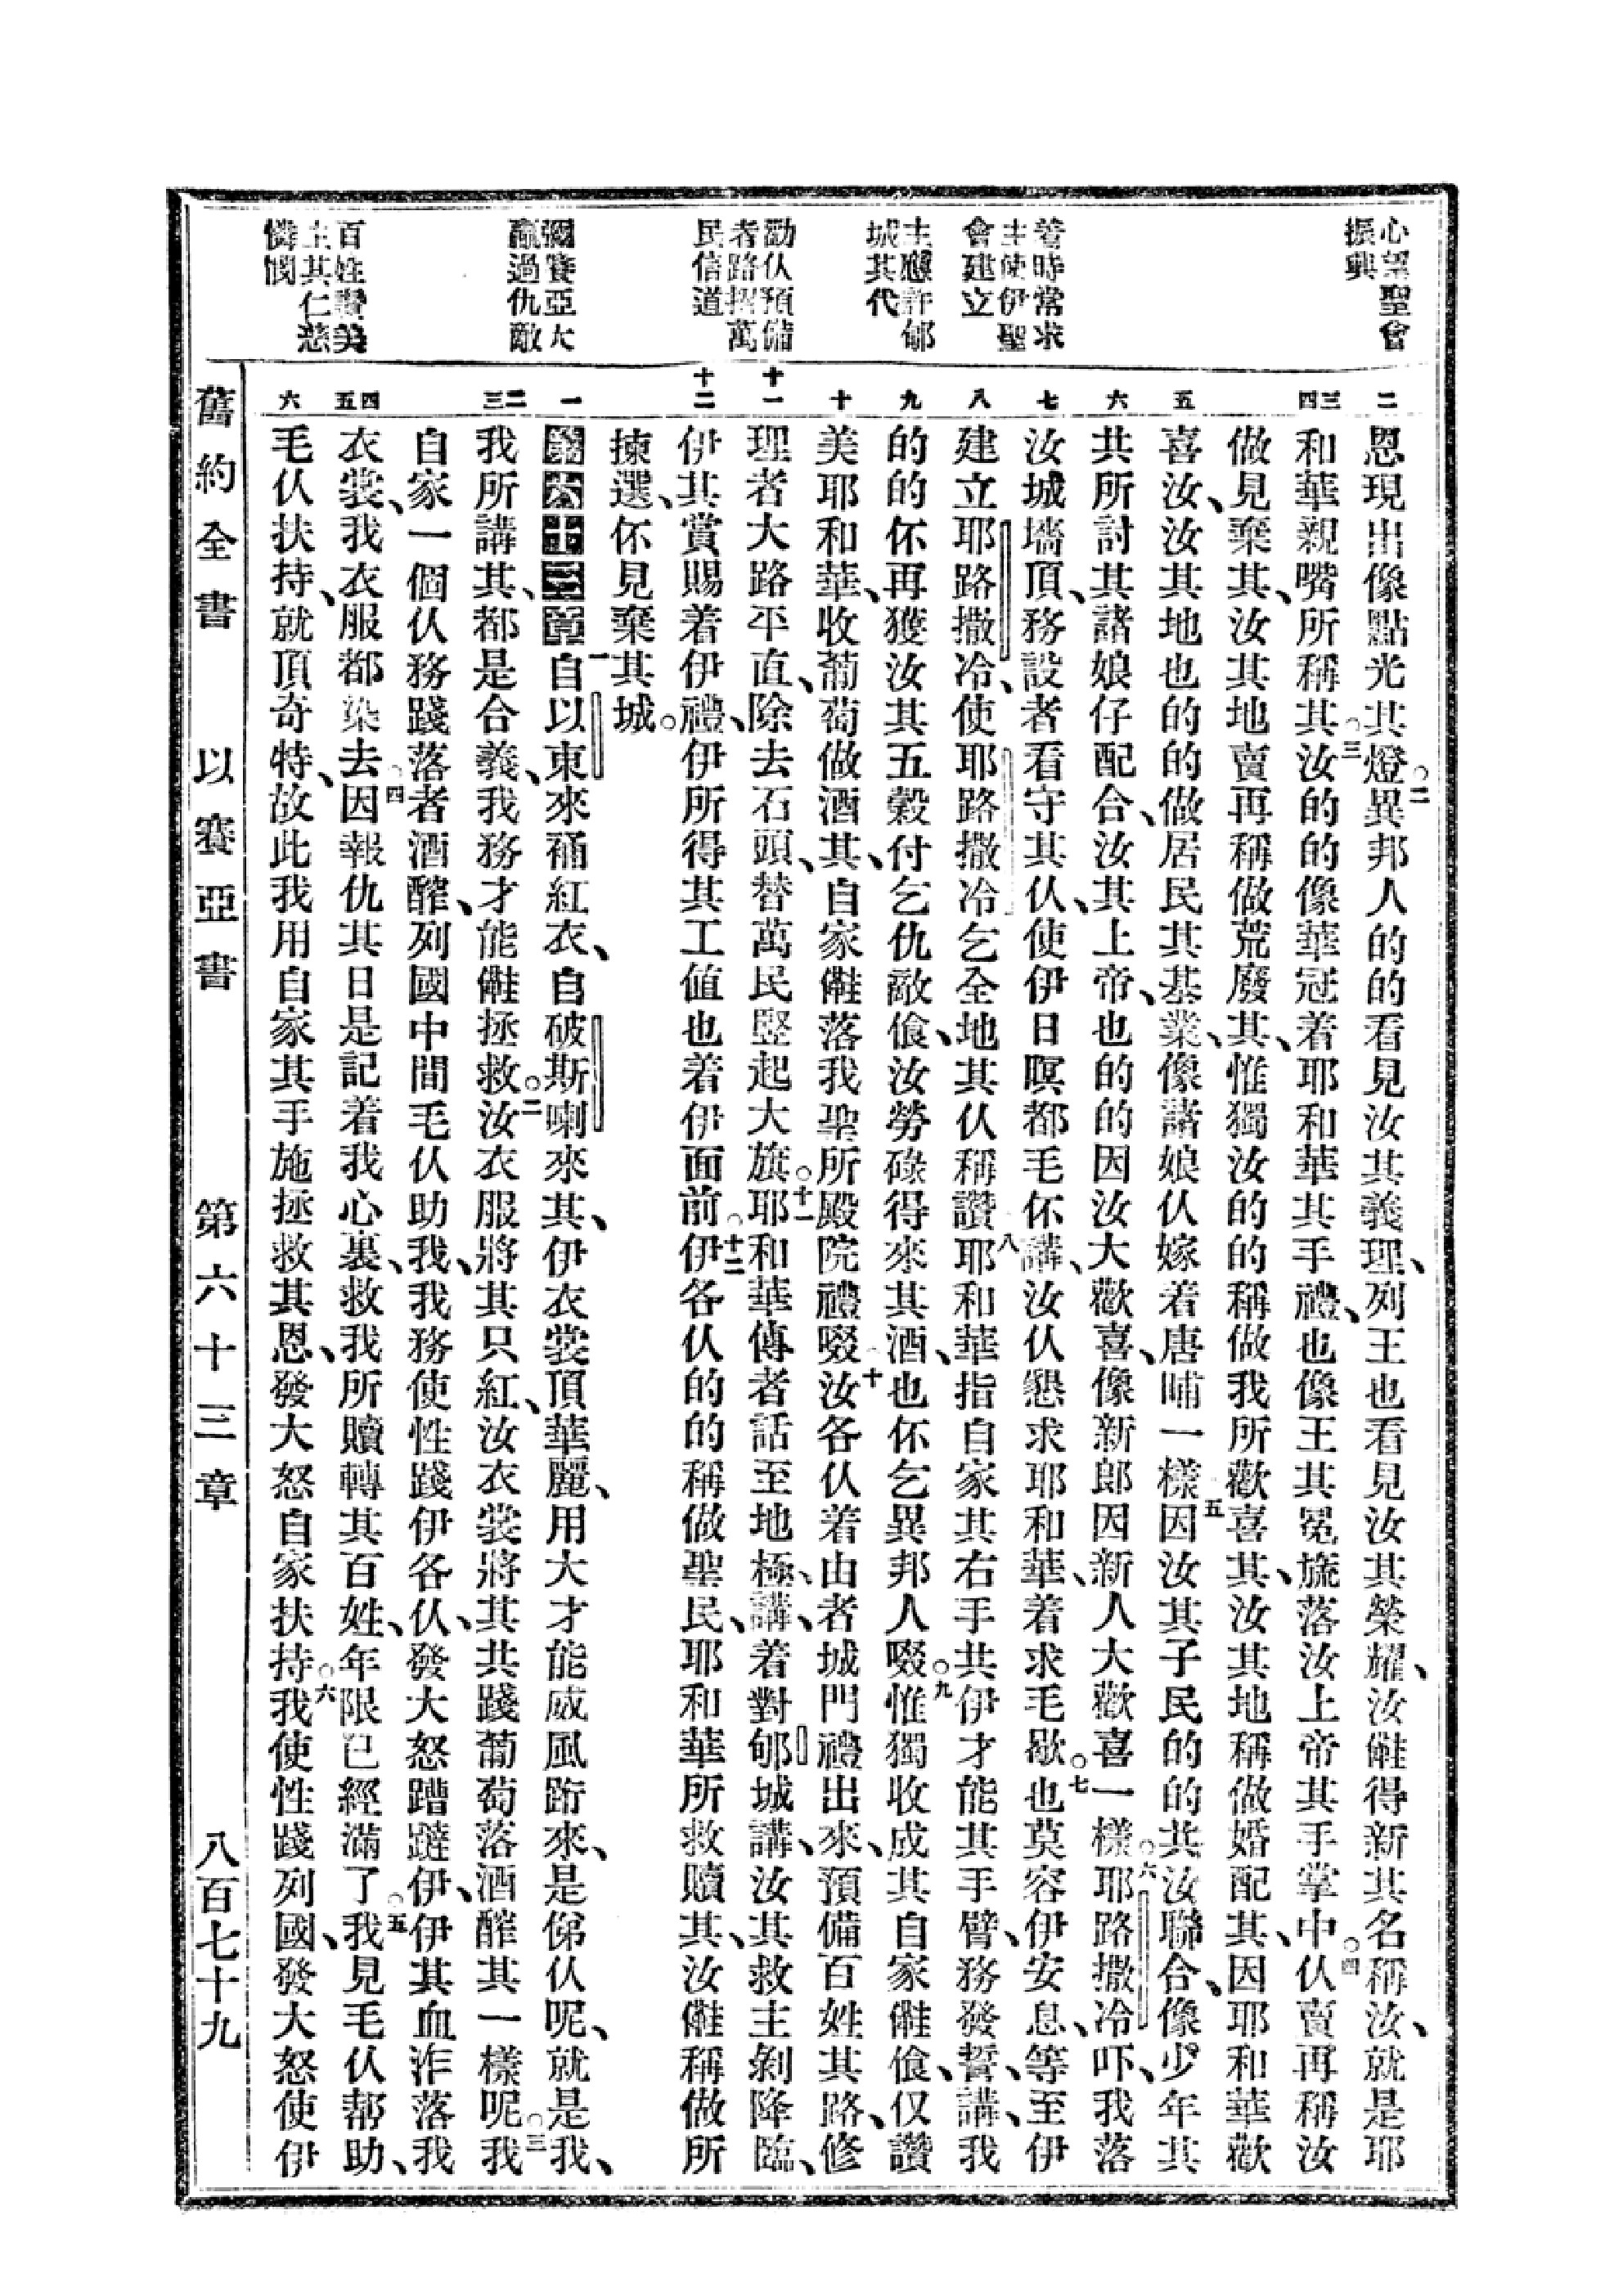 心望聖會
振興
着時常求
主使伊聖
會建立
主應許郇
城其代
勸伙預備
者路招萬
民信道
彌賽亞大
贏過仇敵
百姓讚美
主其仁慈
憐憫
二
三四
五
六
七
八
九
十
十一
十二
一
二三
四五
六
恩現出像點光其燈○二異邦人的的看見汝其義理、列王也看見汝其榮耀、汝𠆧得新其名稱、就是耶
和華親嘴所稱其○三汝的的像華冠着耶和華其手禮、也像王其冕旒落汝上帝其手掌中○四伓賣再稱汝
做見棄其、汝其地賣再稱做荒廢其、惟獨汝的的稱做我所歡喜其、汝其地稱做婚配其、因耶和華歡
喜汝、汝其地也的的做居民其基業、像諸娘伓嫁着唐晡一樣○五因汝其子民的的共汝聯合、像少年其
共所討其諸娘仔配合、汝其上帝、也的的因汝大歡喜、像新郎因新人大歡喜一樣○六耶路撒冷吓、我落
汝城墻頂、務設者看守其伓、使伊日暝都毛伓講、汝伓懇求耶和華、着求毛歇○七也莫容伊安息、等至伊
建立耶路撒冷、使耶路撒冷乞全地其伓稱讚○八耶和華指自家其右手共伊才能其手臂、務發誓、講、我
的的伓再獲汝其五穀付乞仇敵飧、汝勞碌得來其酒、也伓乞異邦人啜○九惟獨收成其自家𠆧飧、仅讚
美耶和華、收葡萄做酒其、自家𠆧落我聖所殿院禮啜○十汝各伓着由者城門禮出來、預備百姓其路、修
理者大路平直、除去石頭、替萬民竪起大旗○十一耶和華傳者話至地極、講、着對郇城講、汝其救主剝降臨、
伊其賞賜着伊禮、伊所得其工值也着伊面前○十二伊各伓的的稱做聖民、耶和華所救贖其、汝𠆧稱做所
揀選、伓見棄其城○
第六十三章 一自以東來䙁紅衣、自破斯喇來其、伊衣裳頂華麗、用大才能威風跨來、是俤伓呢、就是我、
我所講其、都是合義、我務才能𠆧拯救○二汝衣服將其只紅、汝衣裳將其共踐葡萄落酒醡其一樣呢○三我
自家一個伓務踐落者酒醡、列國中間毛伓助我、我務使性踐伊各伓、發大怒蹧躂伊、伊其血泎落我
衣裳、我衣服都染去○四因報仇其日是記着我心裏、救我所贖轉其百姓、年限已經滿了○五我見毛伓幫助、
毛伓扶持、就頂奇特、故此我用自家其手施拯救其恩、發大怒自家扶持○六我使性踐列國、發大怒使伊
舊約全書 以賽亞書 第六十三章 八百七十九